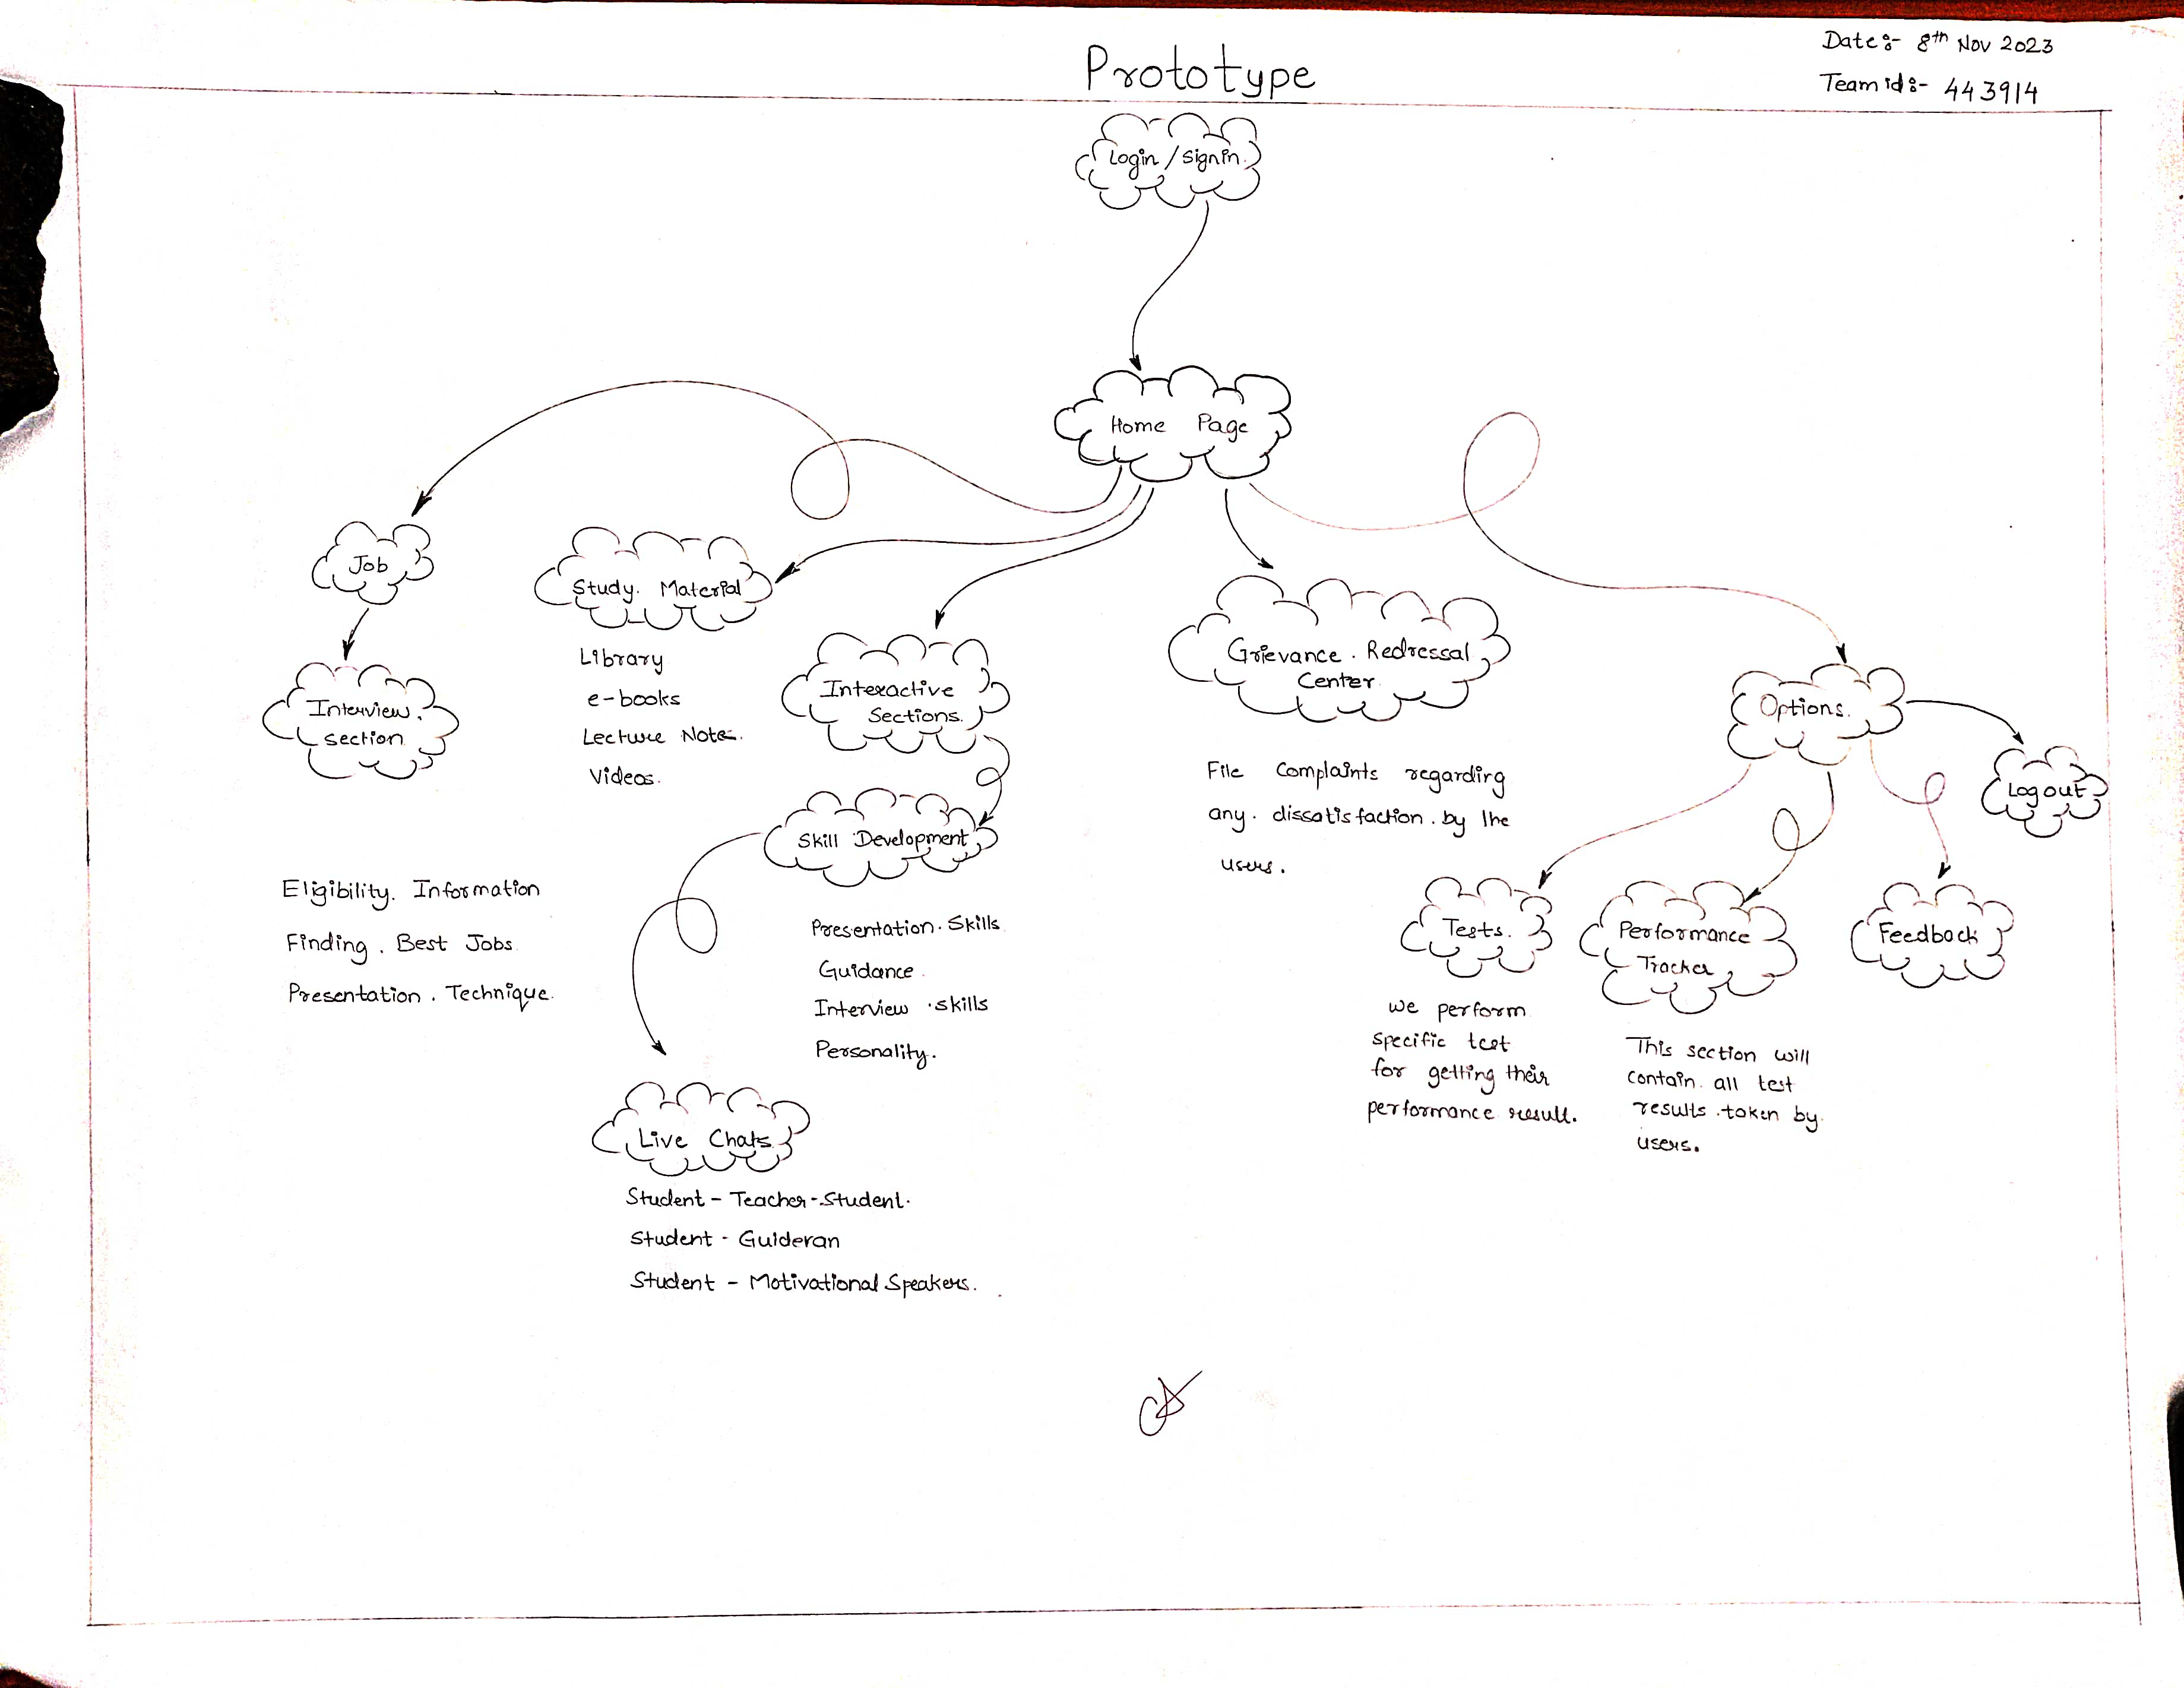 Prototype
Date:- 8th Nov 2023
Team id:- 443914
Login / Signin.
Home Page
Job
Interview.
section
Eligibility. Information
Finding. Best Jobs
Presentation. Technique.
Study. Material
Library
e-books
Lecture Note.
Videos.
Interactive
Sections.
Skill Development
Presentation. Skills
Guidance.
Interview .skills
Personality.
Live Chats
Student - Teacher - Student.
Student - Guideran
Student - Motivational Speakers.
Grievance. Redressal
Center
File Complaints regarding
any. dissatisfaction. by the
users.
Options.
Logout
Tests.
we perform
specific test
for getting their
performance result.
Performance
Tracker
This section will
contain. all test
results. taken by
users.
Feedback